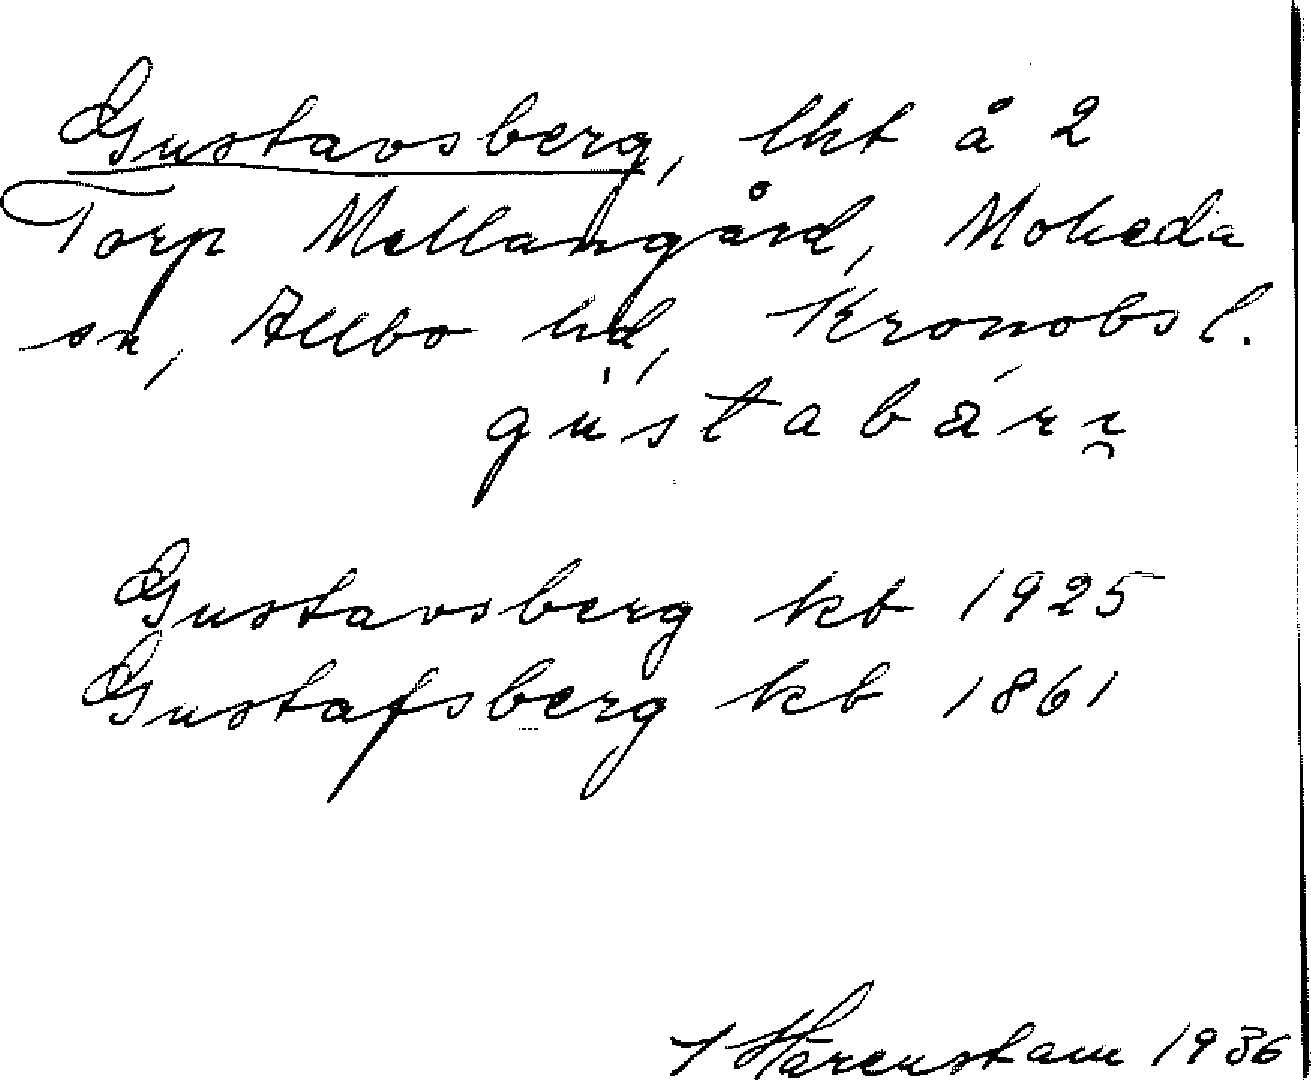 Gustavsberg, lht å 2
Torp Mellangård, Moheda
sn, Allbo hd, Kronobs l.
gustabärɪ
Gustavsberg kb 1925
Gustafsberg kb 1861
Härenstam 1936